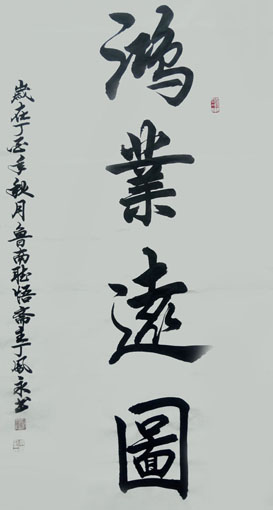 鸿業遠圖
歲在丁酉年秋月魯南聴悟齋主丁風永书